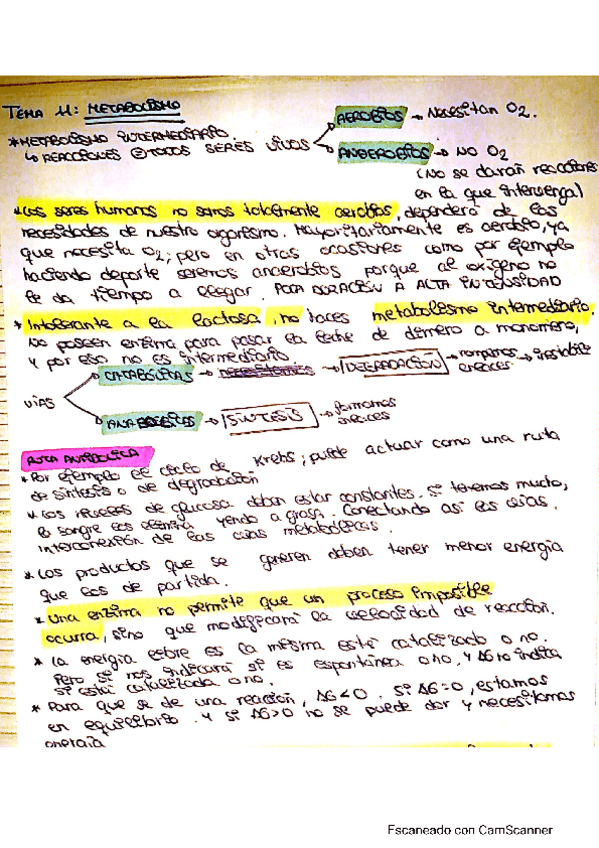 TEMA 11: METABOLISMO
AEROBIOS → Necesitan O2.
*METABOLISMO INTERMEDIARIO.
↳ REACCIONES TODOS SERES VIVOS
ANAEROBIOS → NO O2
(No se darán reacciones
en la que intervenga)
*Los seres humanos no somos totalmente aerobios, dependerá de las
necesidades de nuestro organismo. Mayoritariamente es aerobio, ya
que necesita O2; pero en otras ocasiones como por ejemplo
haciendo deporte seremos anaerobios porque al oxígeno no
le da tiempo a llegar. POCA DURACIÓN A ALTA INTENSIDAD
* Intolerante a la lactosa, no haces metabolismo intermediario.
No poseen enzima para pasar la leche de dímero a monómero,
y por eso no es intermediario.
CATABÓLICAS → → DEGRADACIÓN → rompemos enlaces →
VÍAS
ANABÓLICAS → SÍNTESIS → formamos enlaces
RUTA ANFIBÓLICA
* Por ejemplo el ciclo de Krebs; puede actuar como una ruta
de síntesis o de degradación
* Los niveles de glucosa deben estar constantes. Si tenemos mucho,
la sangre los elimina yendo a grasa. Conectando así las vías.
interconexión de las vías metabólicas.
* Los productos que se generen deben tener menor energía
que los de partida.
* Una enzima no permite que un proceso imposible
ocurra, sino que modificará la velocidad de reacción.
* La energía libre es la misma esté catalizado o no.
Pero sí nos indicará si es espontánea o no. Y ΔG no indica
si está catalizada o no.
* Para que se dé una reacción, ΔG<0. Si ΔG=0, estamos
en equilibrio. Y si ΔG>0 no se puede dar y necesitamos
energía
Escaneado con CamScanner